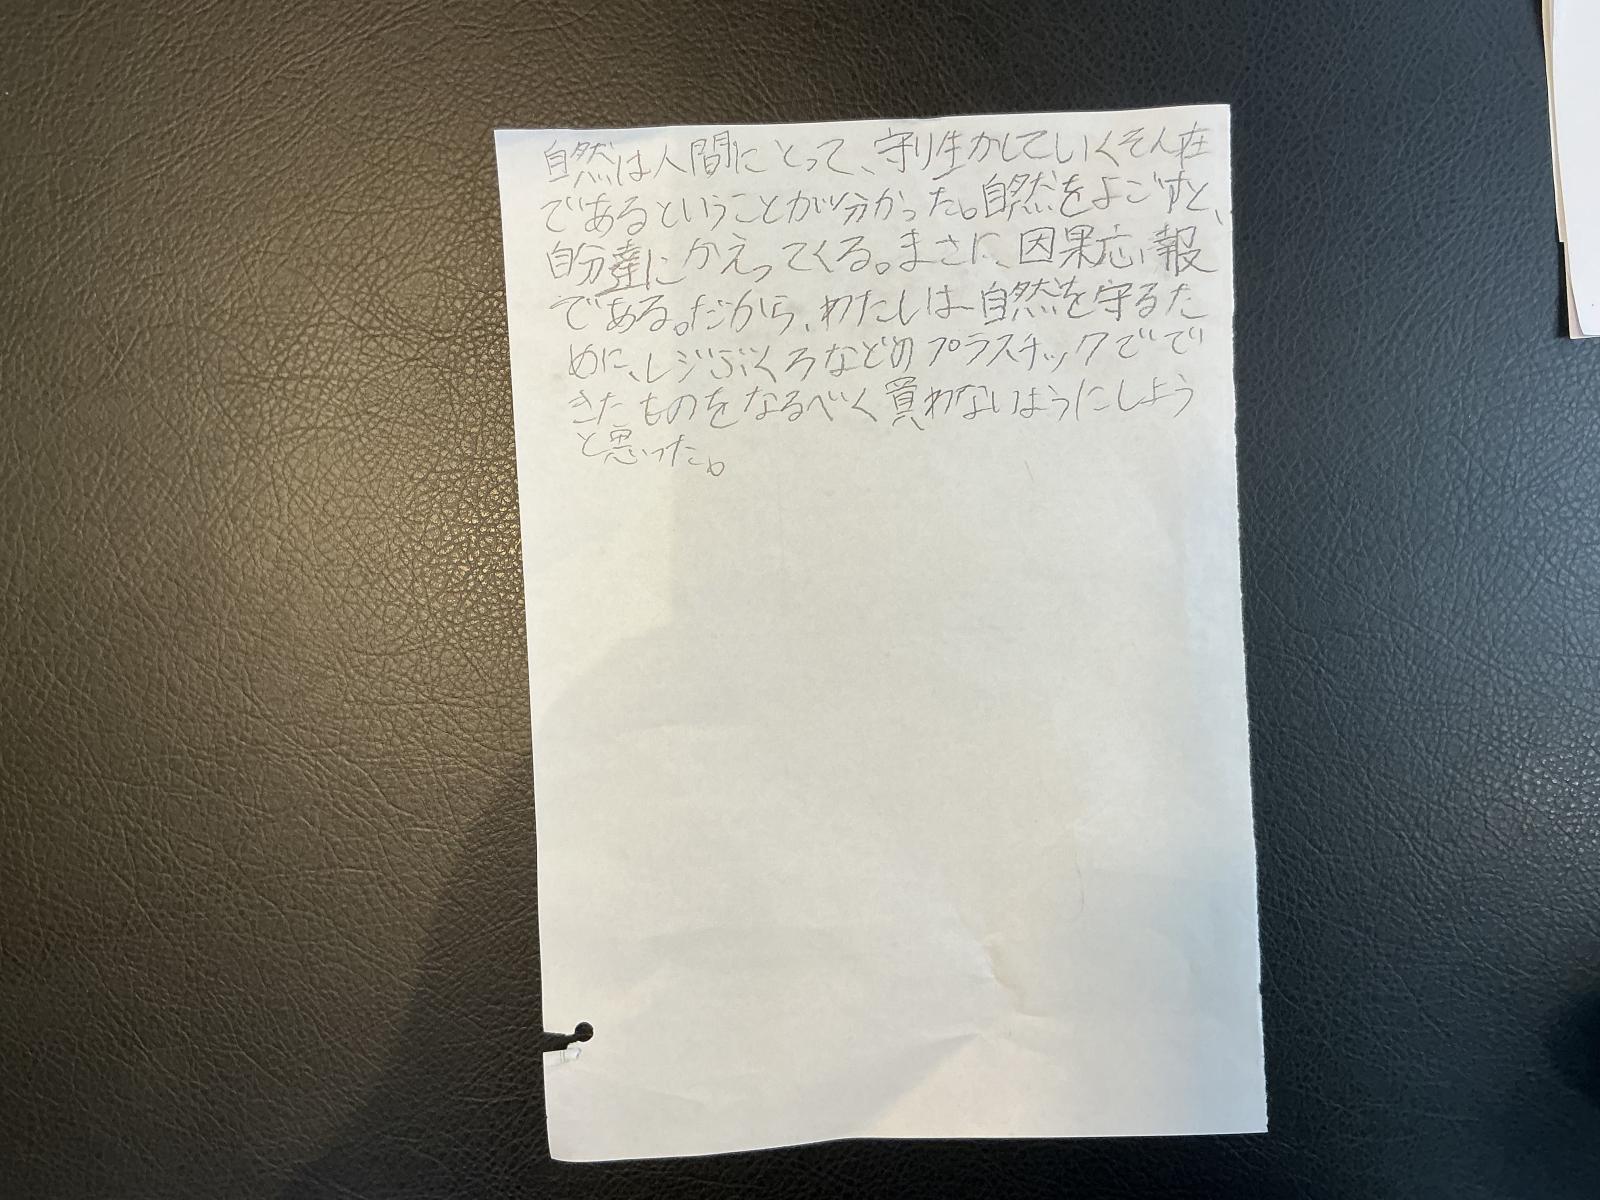 自然は人間にとって、守り生かしていくそん在
であるということが分かった。自然をよごすと、
自分達にかえってくる。まさに、因果応報
である。だから、わたしは自然を守るた
めに、レジぶくろなどのプラスチックでで
きたものをなるべく買わないようにしよう
と思った。